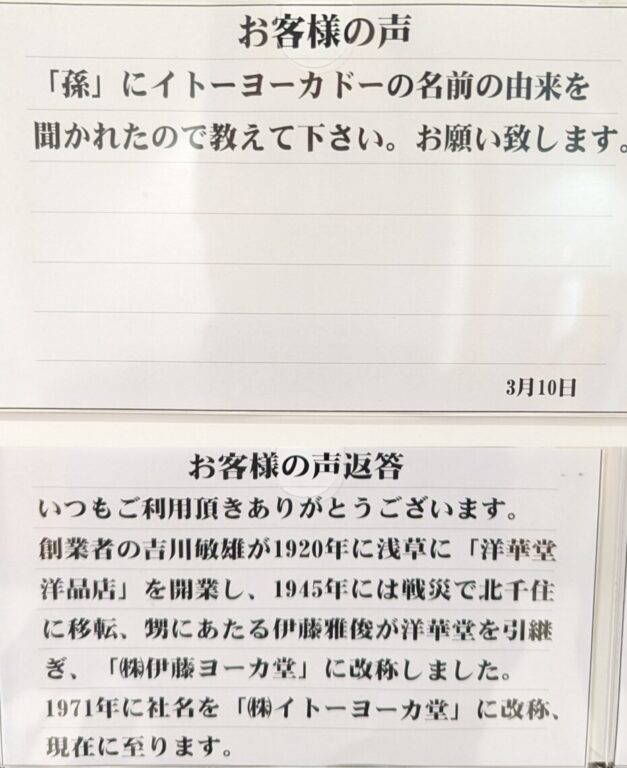 お客様の声
「孫」にイトーヨーカドーの名前の由来を
聞かれたので教えて下さい。お願い致します。
3月10日
お客様の声返答
いつもご利用頂きありがとうございます。
創業者の吉川敏雄が1920年に浅草に「洋華堂
洋品店」を開業し、1945年には戦災で北千住
に移転、甥にあたる伊藤雅俊が洋華堂を引継
ぎ、「㈱伊藤ヨーカ堂」に改称しました。
1971年に社名を「㈱イトーヨーカ堂」に改称、
現在に至ります。